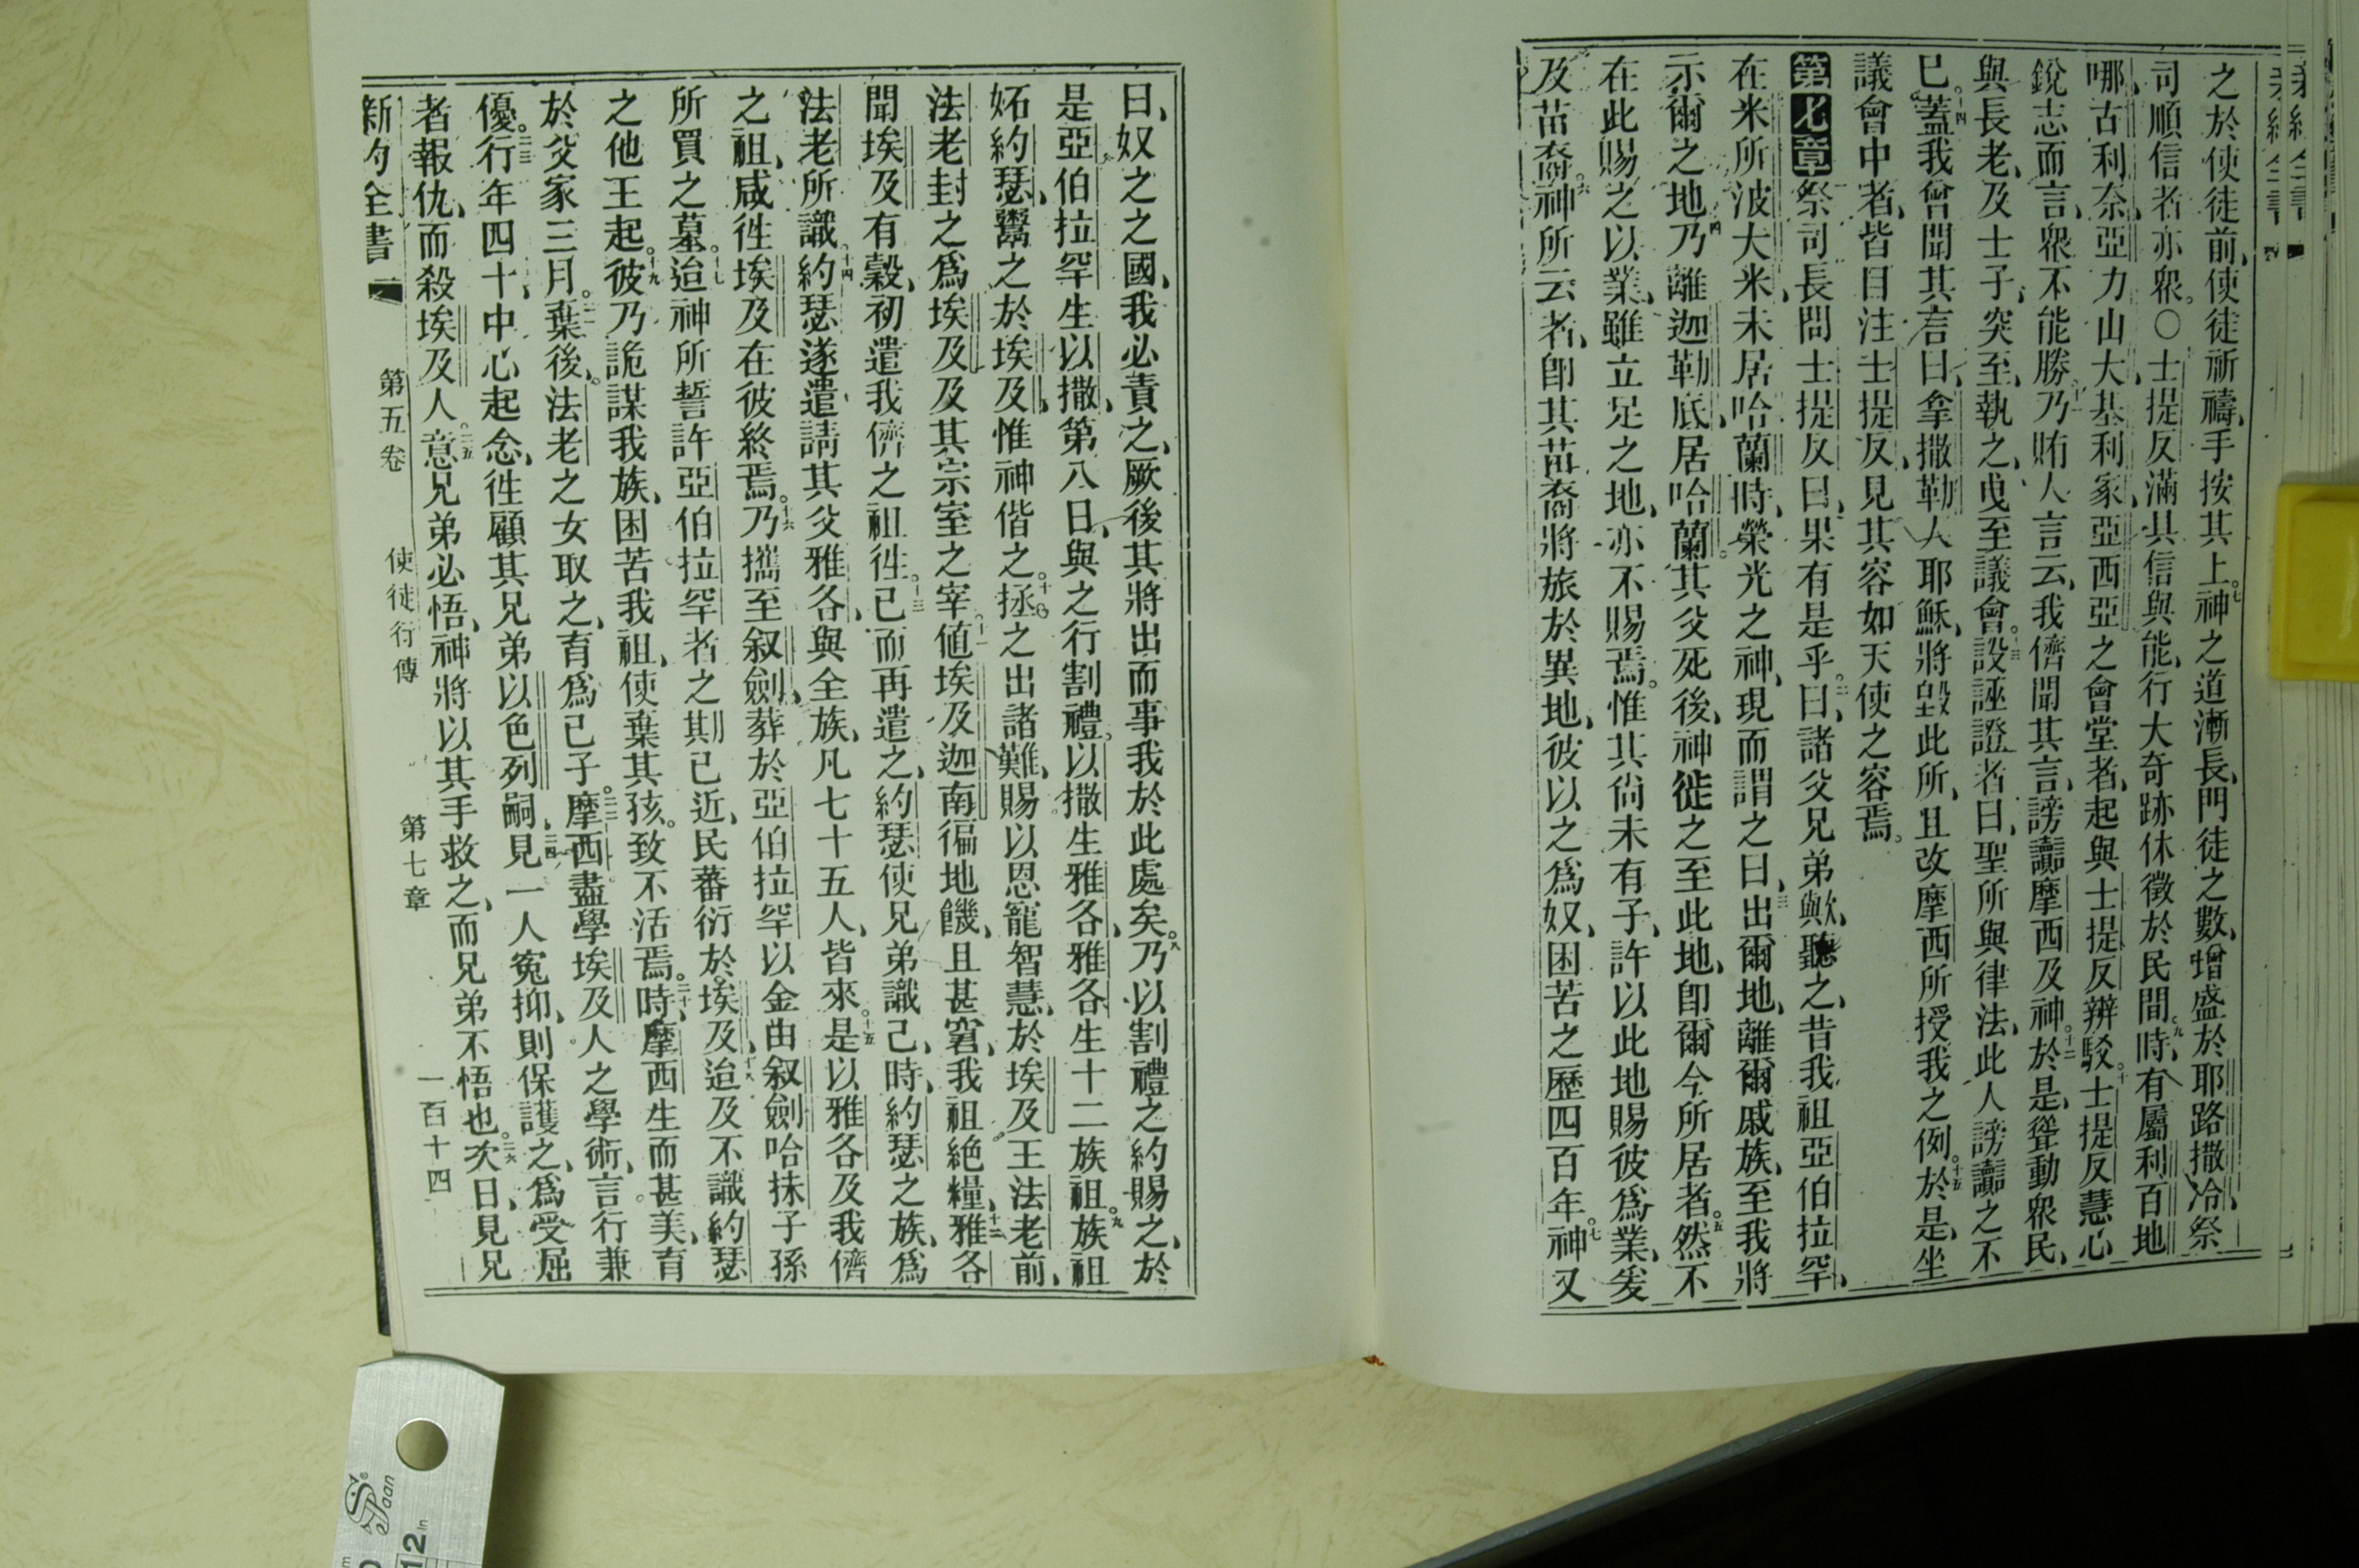 之於使徒前、使徒祈禱、手按其上。七神之道漸長、門徒之數、增盛於耶路撒冷、祭
司順信者亦衆。〇士提反滿其信與能、行大奇跡休徵於民間。九時、有屬利百地
哪、古利奈、亞力山大、基利家、亞西亞之會堂者、起與士提反辨駁。十士提反慧心
銳志而言、衆不能勝。十一乃賄人言云、我儕聞其言、謗讟摩西及神。十二於是、聳動衆民、
與長老、及士子、突至、執之、曳至議會。十三設誣證者曰、聖所與律法、此人謗讟之不
已。十四蓋我曾聞其言曰、拿撒勒人耶穌、將毀此所、且改摩西所授我之例。十五於是、坐
議會中者、皆目注士提反、見其容如天使之容焉。
第七章祭司長問士提反曰、果有是乎。二曰、諸父兄弟歟、聽之、昔我祖亞伯拉罕、
在米所波大米、未居哈蘭時、榮光之神、現而謂之曰、三出爾地、離爾戚族、至我將
示爾之地。四乃離迦勒底、居哈蘭。其父死後、神徙之至此地、卽爾今所居者。五然不
在此賜之以業、雖立足之地、亦不賜焉。惟其尙未有子、許以此地賜彼爲業、爰
及苗裔。六神所云者、卽其苗裔將旅於異地、彼以之爲奴、困苦之歷四百年。七神又
曰、奴之之國、我必責之、厥後其將出而事我於此處矣。八乃以割禮之約賜之、於
是、亞伯拉罕生以撒、第八日、與之行割禮、以撒生雅各、雅各生十二族祖。九族祖
妬約瑟、鬻之於埃及、惟神偕之。十拯之出諸難、賜以恩寵智慧、於埃及王法老前、
法老封之爲埃及、及其宗室之宰。十一値埃及迦南徧地饑、且甚窘、我祖絕糧、十二雅各
聞埃及有穀、初遣我儕之祖徃。十三已而再遣之、約瑟使兄弟識己、時、約瑟之族、爲
法老所識。十四約瑟遂遣請其父雅各、與全族、凡七十五人、皆來。十五是以雅各及我儕
之祖、咸徃埃及、在彼終焉。十六乃攜至叙劍、葬於亞伯拉罕以金由叙劍哈抹子孫
所買之墓。十七迨神所誓許亞伯拉罕者之期已近、民蕃衍於埃及、十八迨及不識約瑟
之他王起。十九彼乃詭謀我族、困苦我祖、使棄其孩。致不活焉。二十時、摩西生而甚美、育
於父家三月。二一棄後、法老之女取之、育爲己子。二二摩西盡學埃及人之學術、言行兼
優。二三行年四十、中心起念、徃顧其兄弟以色列嗣、二四見一人寃抑、則保護之、爲受屈
者報仇、而殺埃及人。二五意兄弟必悟、神將以其手救之、而兄弟不悟也。二六次日、見兄
新約全書 第五卷 使徒行傳 第七章 一百十四
Jaan